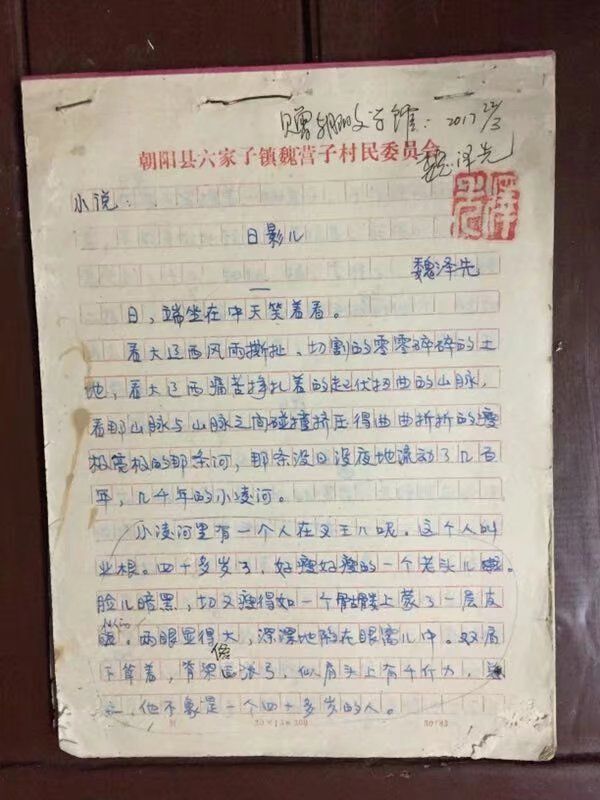 赠朝阳文学馆：2017 22/3
魏泽先
朝阳县六家子镇魏营子村民委员会
小说：
日影儿
魏泽先
日，端坐在中天笑着看。
看大辽西风雨撕扯、切割的零零碎碎的土
地，看大辽西痛苦挣扎着的起伏扭曲的山脉，
看那山脉与山脉之间碰撞挤压得曲曲折折的瘦
极窄极的那条河，那条没日没夜地流动了几百
年，几千年的小凌河。
小凌河里有一个人在叉王八呢。这个人叫
业根。四十多岁了，好瘦好瘦的一个老头儿。
脸儿暗黑，切又瘦得如一个骷髅上蒙了一层皮
两眼显得大，深深地陷在眼窝儿中。双肩
下耷着，背梁 张弓，似肩头上有千斤力，
他不象是一个四十多岁的人。
20×15=300